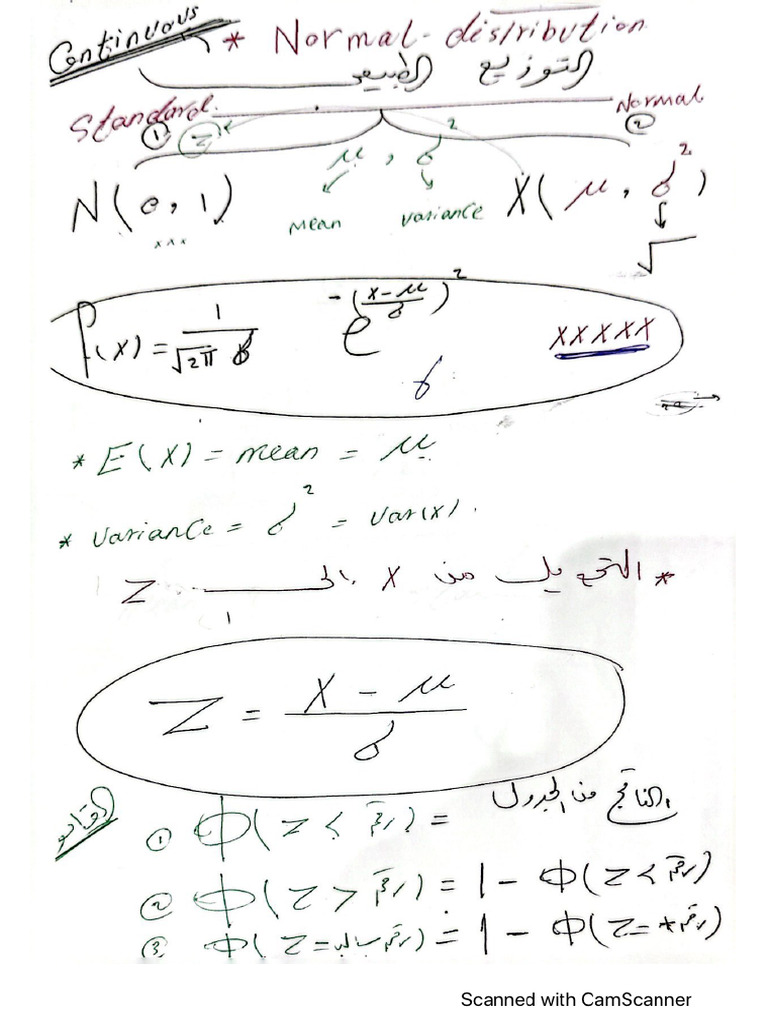 Continuous * Normal-distribution
التوزيع الطبيعي
Standard. Normal
① Z ②
μ , σ²
N(0,1) mean variance X(μ, σ²)
xxx √
f(x) = 1/√2π σ e^-((x-μ)/σ)² XXXXX
σ
* E(X) = mean = μ
* Variance = σ² = Var(x).
* التحويل من X إلى Z
Z = (X - μ)/σ
① Φ(Z < رقم) = الناتج من الجدول
② Φ(Z > رقم) = 1 - Φ(Z < رقم)
③ Φ(Z = رقم سالب) = 1 - Φ(Z = رقم +)
Scanned with CamScanner